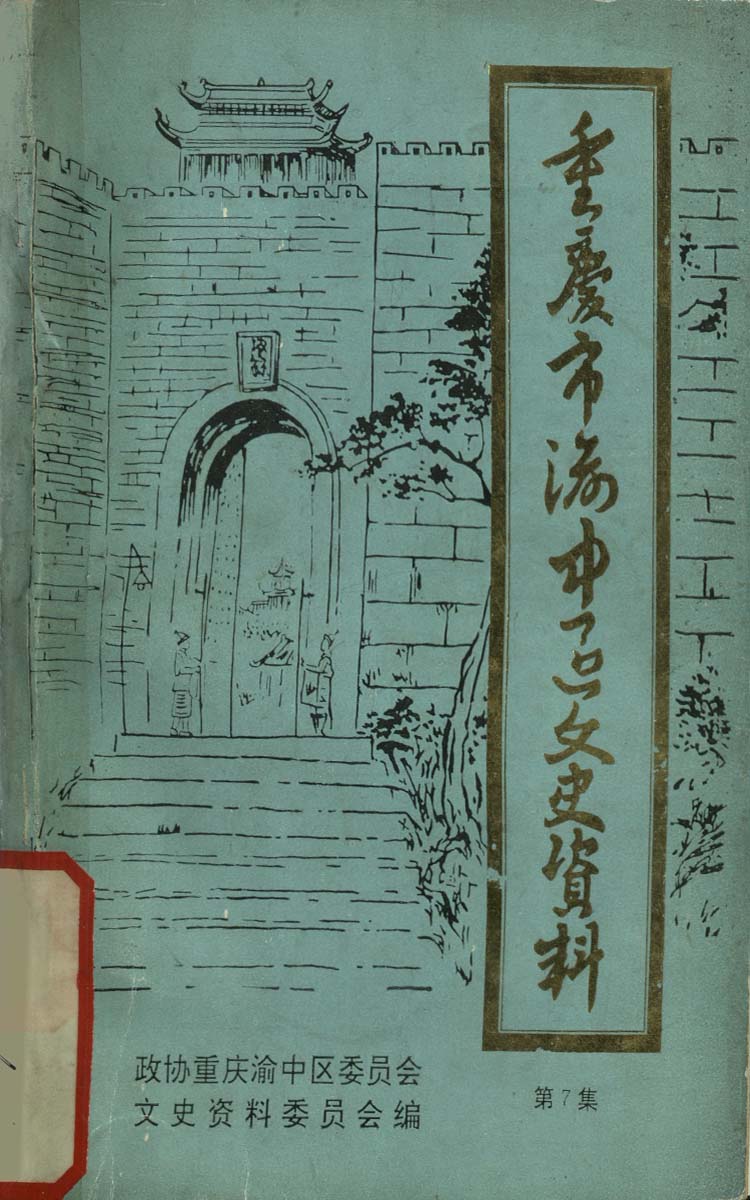 重慶市渝中区文史資料
政协重庆渝中区委员会
文史资料委员会编
第7集